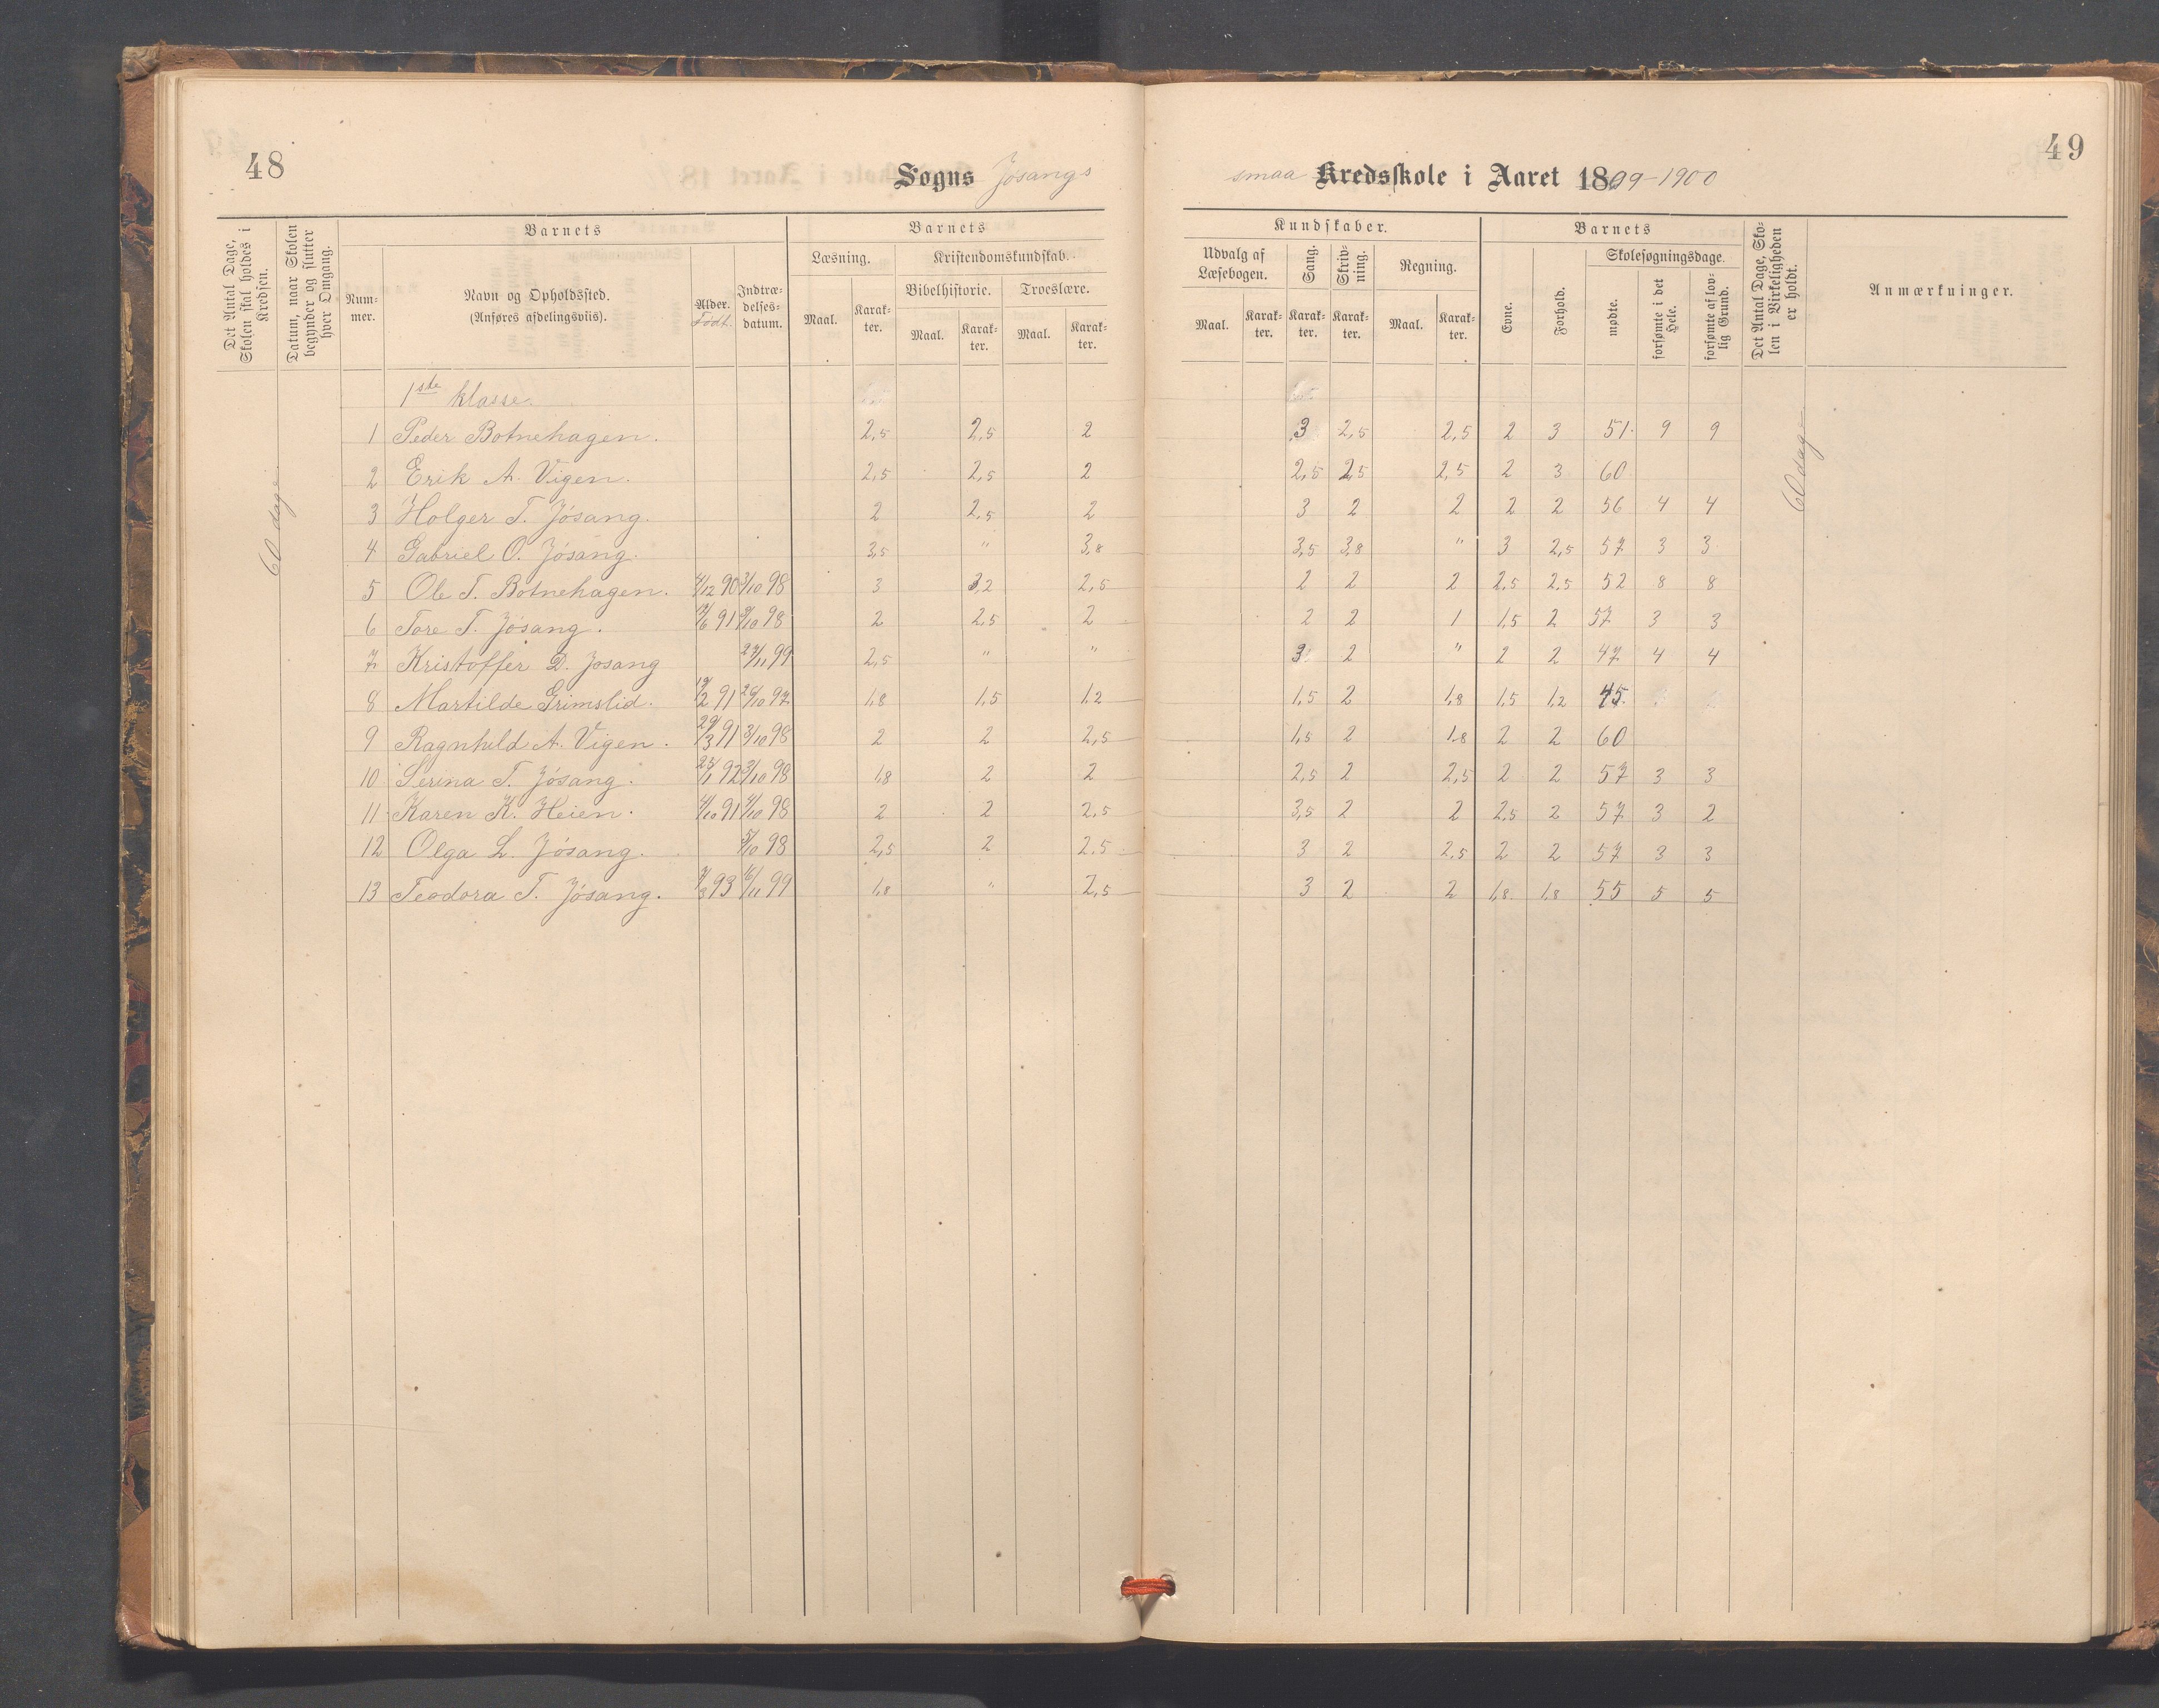 48
Sogns Jósangs
Det Antal Dage, Skolen skal holdes i Kredsen.
Datum, naar Skolen begynder og slutter hver Omgang.
Barnets
Barnets
Num-
mer.
Navn og Opholdssted.
(Anføres afdelingsviis).
Alder.
Født.
Indtræ-
delses-
datum.
Læsning.
Kristendomskundskab.
Bibelhistorie.
Troeslære.
Maal.
Karak-
ter.
Maal.
Karak-
ter.
Maal.
Karak-
ter.
60 dage
1ste klasse.
1 Peder Botnehagen. 2,5 2,5 2
2 Erik A. Vigen. 2,5 2,5 2
3 Holger T. Jósang. 2 2,5 2
4 Gabriel O. Jósang. 3,5 " 3,8
5 Ole T. Botnehagen. 4/12 90 3/10 98 3 3,2 2,5
6 Tore T. Jósang. 91 3/10 98 2 2,5 2
7 Kristoffer D. Josang 99 2,5 " "
8 Martilde Grimslid. 19/2 91 97 1,8 1,5 1,2
9 Ragnhild A. Vigen. 29/3 91 3/10 98 2 2 2,5
10 Serina T. Jósang. 25/1 92 3/10 98 1,8 2 2
11 Karen K. Heien. 4/10 91 4/10 98 2 2 2,5
12 Olga L. Jósang. 5/10 98 2,5 2 2,5
13 Teodora T. Jósang. 93 16/11 99 1,8 " 2,5
49
smaa Kredsskole i Aaret 1899-1900
Kundskaber.
Barnets
Udvalg af
Læsebogen.
Sang.
Skriv-
ning.
Regning.
Skolesøgningsdage.
Maal.
Karak-
ter.
Karak-
ter.
Karak-
ter.
Maal.
Karak-
ter.
Evne.
Forhold.
mødte.
forsømte i det Hele.
forsømte af lov-
lig Grund.
Det Antal Dage, Sko-
len i Virkeligheden
er holdt.
Anmærkninger.
60 dage
3 2,5 2,5 2 3 51 9 9
2,5 2,5 2,5 2 3 60
3 2 2 2 2 56 4 4
3,5 3,8 " 3 2,5 57 3 3
2 2 2 2,5 2,5 52 8 8
2 2 1 1,5 2 57 3 3
3 2 " 2 2 47 4 4
1,5 2 1,8 1,5 1,2 45
1,5 2 1,8 2 2 60
2,5 2 2,5 2 2 57 3 3
3,5 2 2 2,5 2 57 3 2
3 2 2,5 2 2 57 3 3
3 2 2 1,8 1,8 55 5 5